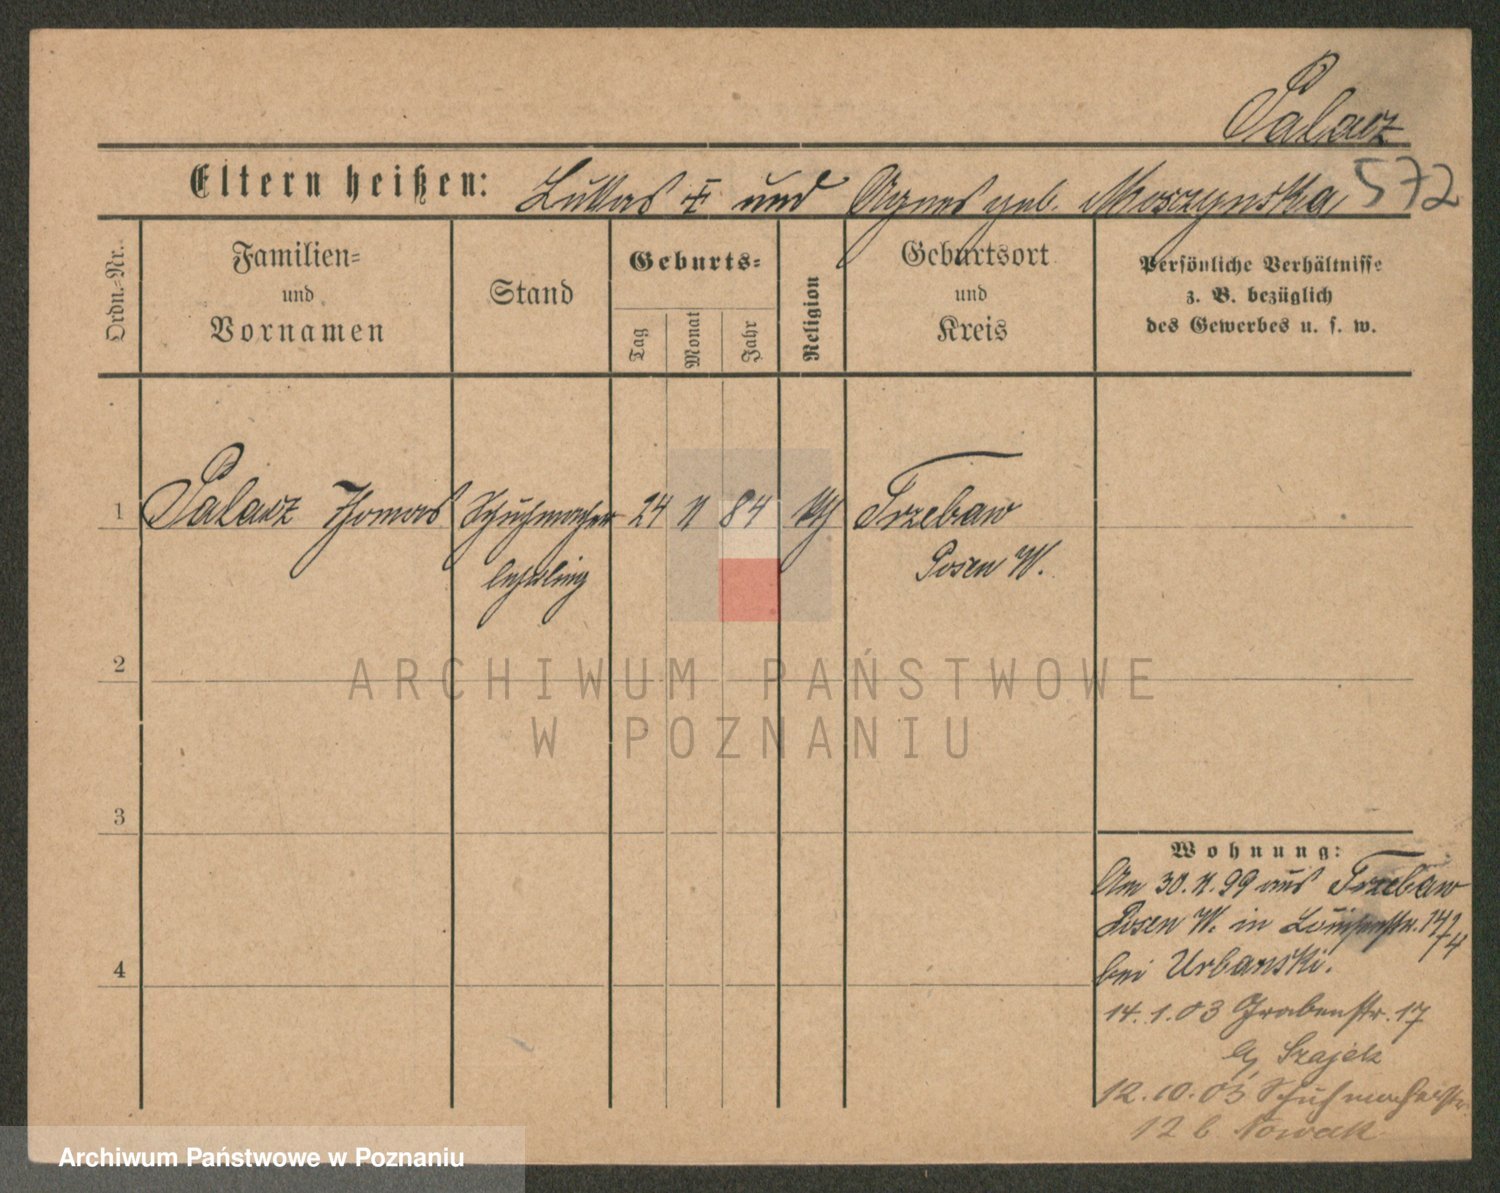 Palacz
572
Eltern heißen: Lukas I und Agnes geb. Moszynska
Ordn.-Nr.
Familien-
und
Vornamen
Stand
Geburts-
Tag
Monat
Jahr
Religion
Geburtsort
und
Kreis
Persönliche Verhältnisse
z. B. bezüglich
des Gewerbes u. s. w.
1 Palacz Thomas Schuhmacher 24 11 84 kth Trzebaw
lehrling Posen W.
2
ARCHIWUM PAŃSTWOWE
W POZNANIU
3
Wohnung:
Am 30. 11. 99 aus Trzebaw
Posen W. in
bei Urbanski.
4
14. 1. 03 Grabenstr. 17
Szajek
12. 10. 03 Schuhmacherstr.
12 b Nowak
Archiwum Państwowe w Poznaniu